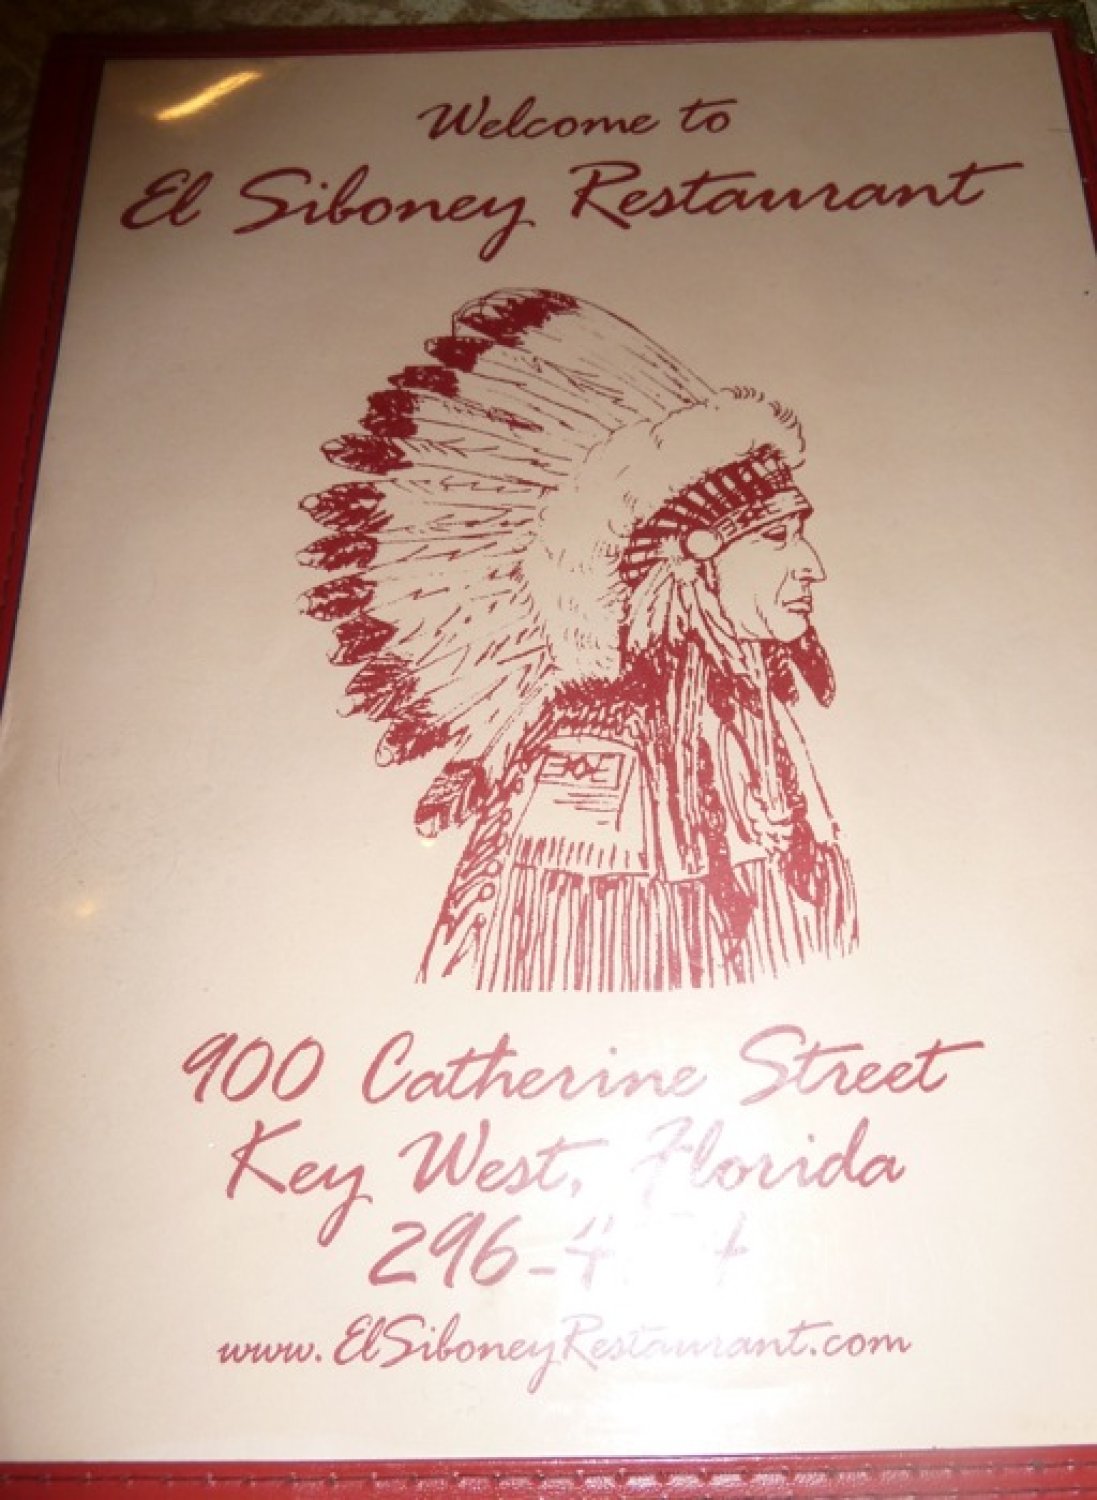 Welcome to
El Siboney Restaurant
900 Catherine Street
Key West, Florida
www.ElSiboneyRestaurant.com